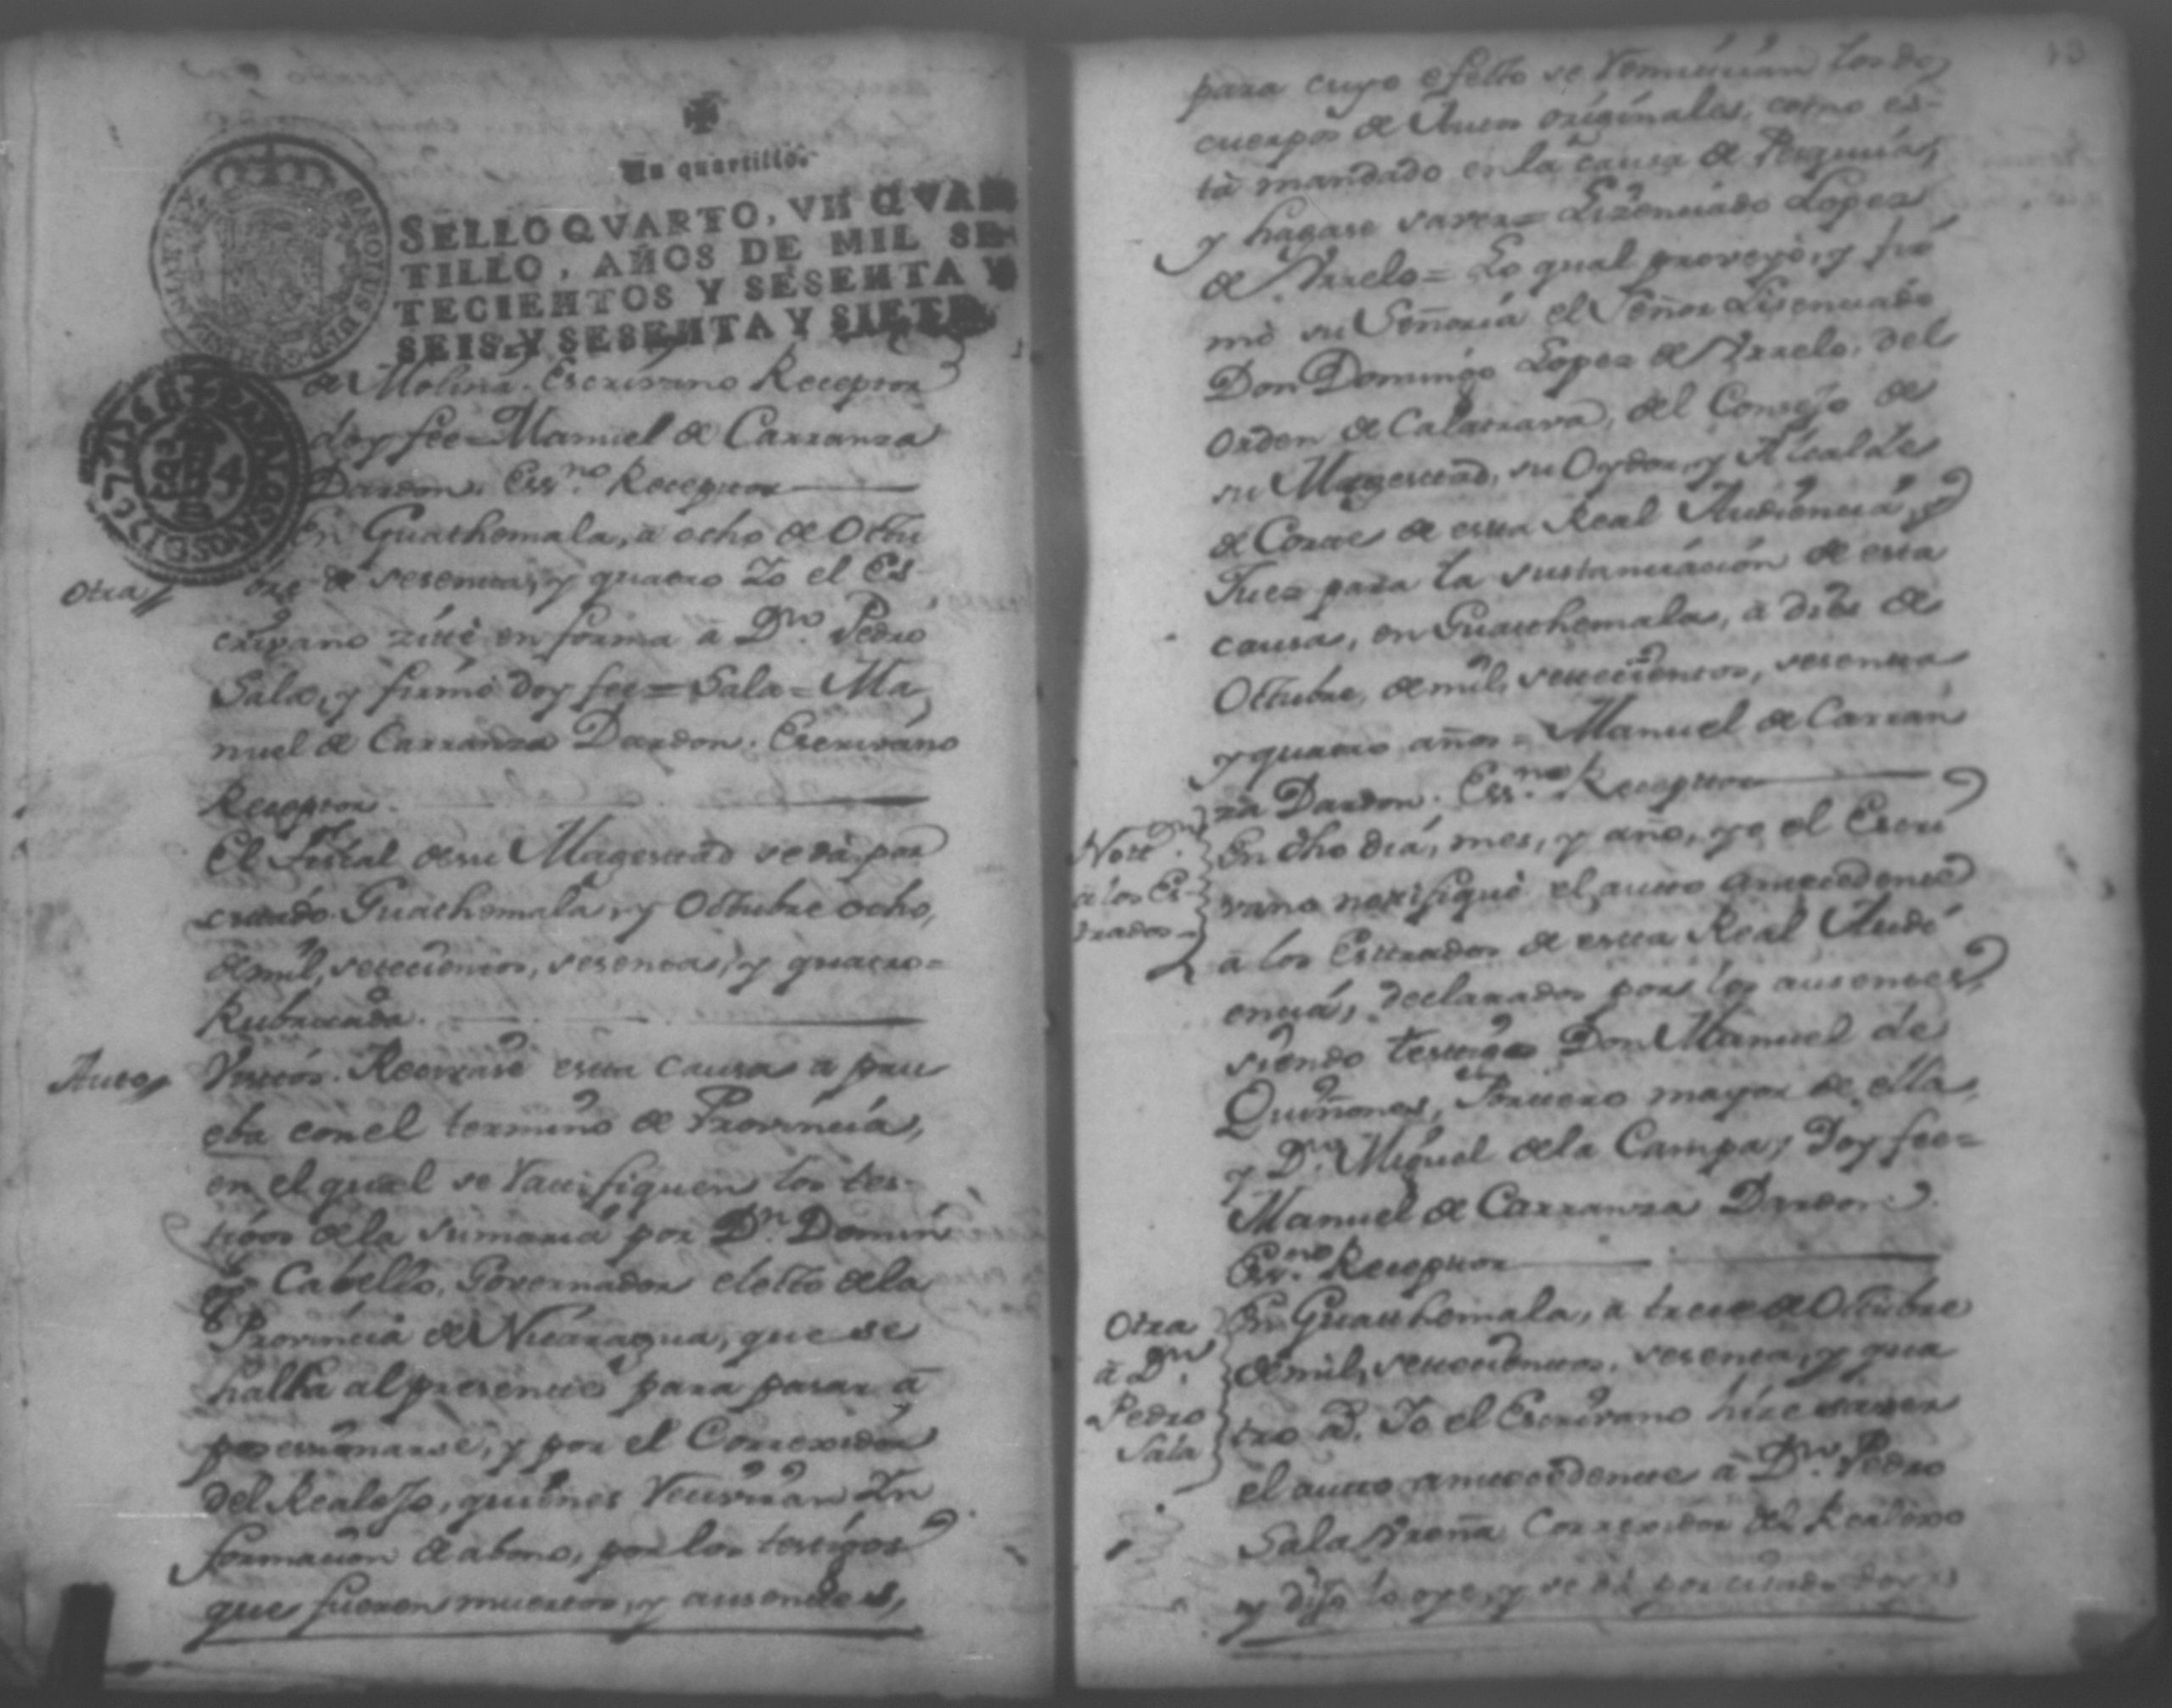 Un quartillo.
SELLO QVARTO, VN QVAR
TILLO, AÑOS DE MIL SE
TECIENTOS Y SESENTA Y
SEIS, Y SESENTA Y SIETE
de Molina. Escrivano Receptor
doy fee = Manuel de Carranza
Dardon. Essno. Receptor
Otra
En Guathemala, a ocho de Octu
bre de sesenta, y quatro Yo el Es-
crivano zité en forma a Dn. Pedro
Sala, y firmó doy fee = Sala = Ma
nuel de Carranza Dardon. Escrivano
Receptor.
El Fiscal de su Magestad se dá por
cittado. Guathemala, y Octubre ocho,
de mil, setecientos, sesenta, y quatro =
Rubricada.
Auto
Vistos. Recivase esta causa a pru
eba con el termino de Provincia,
en el qual se ratifiquen los tes-
tigos de la sumaria por Dn. Domin
go Cabello, Governador electo de la
Provincia de Nicaragua, que se
halla al presente para pasar a
posesionarse, y por el Correxidor
del Realejo, quienes recivirán In
formacion de abono, por los testigos
que fueren muertos, y ausentes,
para cuyo efecto se remitirán los dos
cuerpos de Autos originales, como es-
tá mandado en la causa de Pesquisa,
y hagase saver = Lizenciado Lopez
de Urrelo = Lo qual proveyó, y fir
mó su Señoria el Señor Lisenciado
Don Domingo Lopez de Urrelo, del
Orden de Calatrava, del Consejo de
su Magestad, su Oydor, y Alcalde
de Corte de esta Real Audiencia, y
Juez para la sustanciacion de esta
causa, en Guathemala, a diez de
Octubre, de mil, setecientos, sesenta
y quatro años = Manuel de Carran
za Dardon. Essno. Receptor
Nott.
a los Es-
trados =
En dho dia, mes, y año, yo el Escri
vano notifiqué el auto antecedente
a los Estrados de esta Real Audi
encia, declarados por los ausentes,
siendo testigos Don Manuel de
Quiñones, Portero mayor de ella,
y Dn. Miguel de la Campa, Doy fee =
Manuel de Carranza Dardon.
Essno. Receptor
Otra
a Dn.
Pedro
Sala
En Guathemala, a trece de Octubre
de mil, setecientos, sesenta, y qua
tro a. Yo el Escrivano hize saver
el auto antecedente a Dn. Pedro
Sala Ureña Correxidor del Realexo
y dijo lo oye, y se dá por citado doy